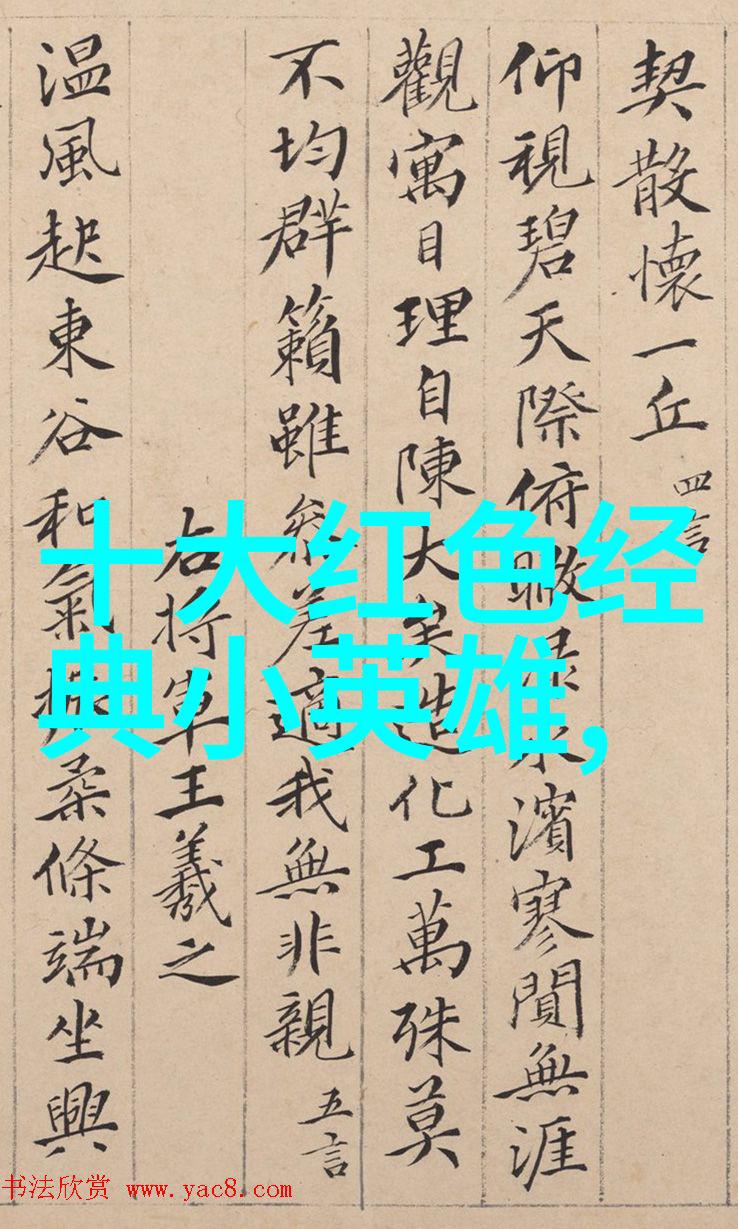 契散懷一丘 四言
仰視碧天際俯瞰水濱寥閴無涯
觀寓目理自陳大矣造化工萬殊莫
不均群籟雖參差適我無非親 五言
右將軍王羲之
温風起東谷和氣振柔條端坐興
十大红色经
典小英雄,
书法欣赏 www.yac8.com